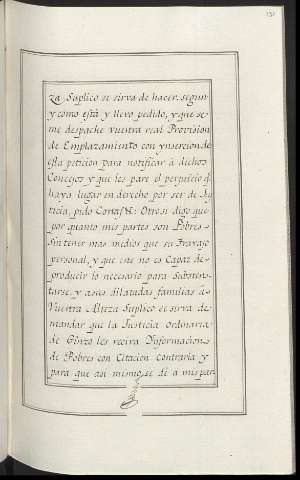 131
za Suplico se sirva de hacer, segun
y como está y llevo pedido, y que se
me despache vuestra real Provision
de Emplazamiento con ynsercion de
esta peticion para notificar á dichos
Concejos y que les pare el perjuicio q.
haya lugar en derecho por ser de Jus
ticia, pido Costas &: Otrosi digo que
por quanto mis partes son Pobres
sin tener mas medios que su Travajo
personal, y que este no es Capaz de
producir lo necesario para Substen-
tarse, y a sus dilatadas familias á
Vuestra Alteza Suplico se sirva de
mandar que la Justicia ordinaria
de Ginzo les reciva Ynformacion
de Pobres con Citacion contraria y
para que asi mismo se dé a mis par